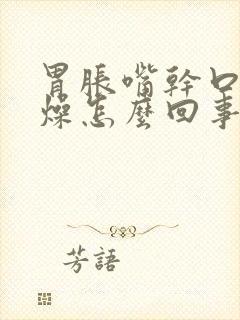 胃脹嘴幹口
燥怎麼回事
芳語